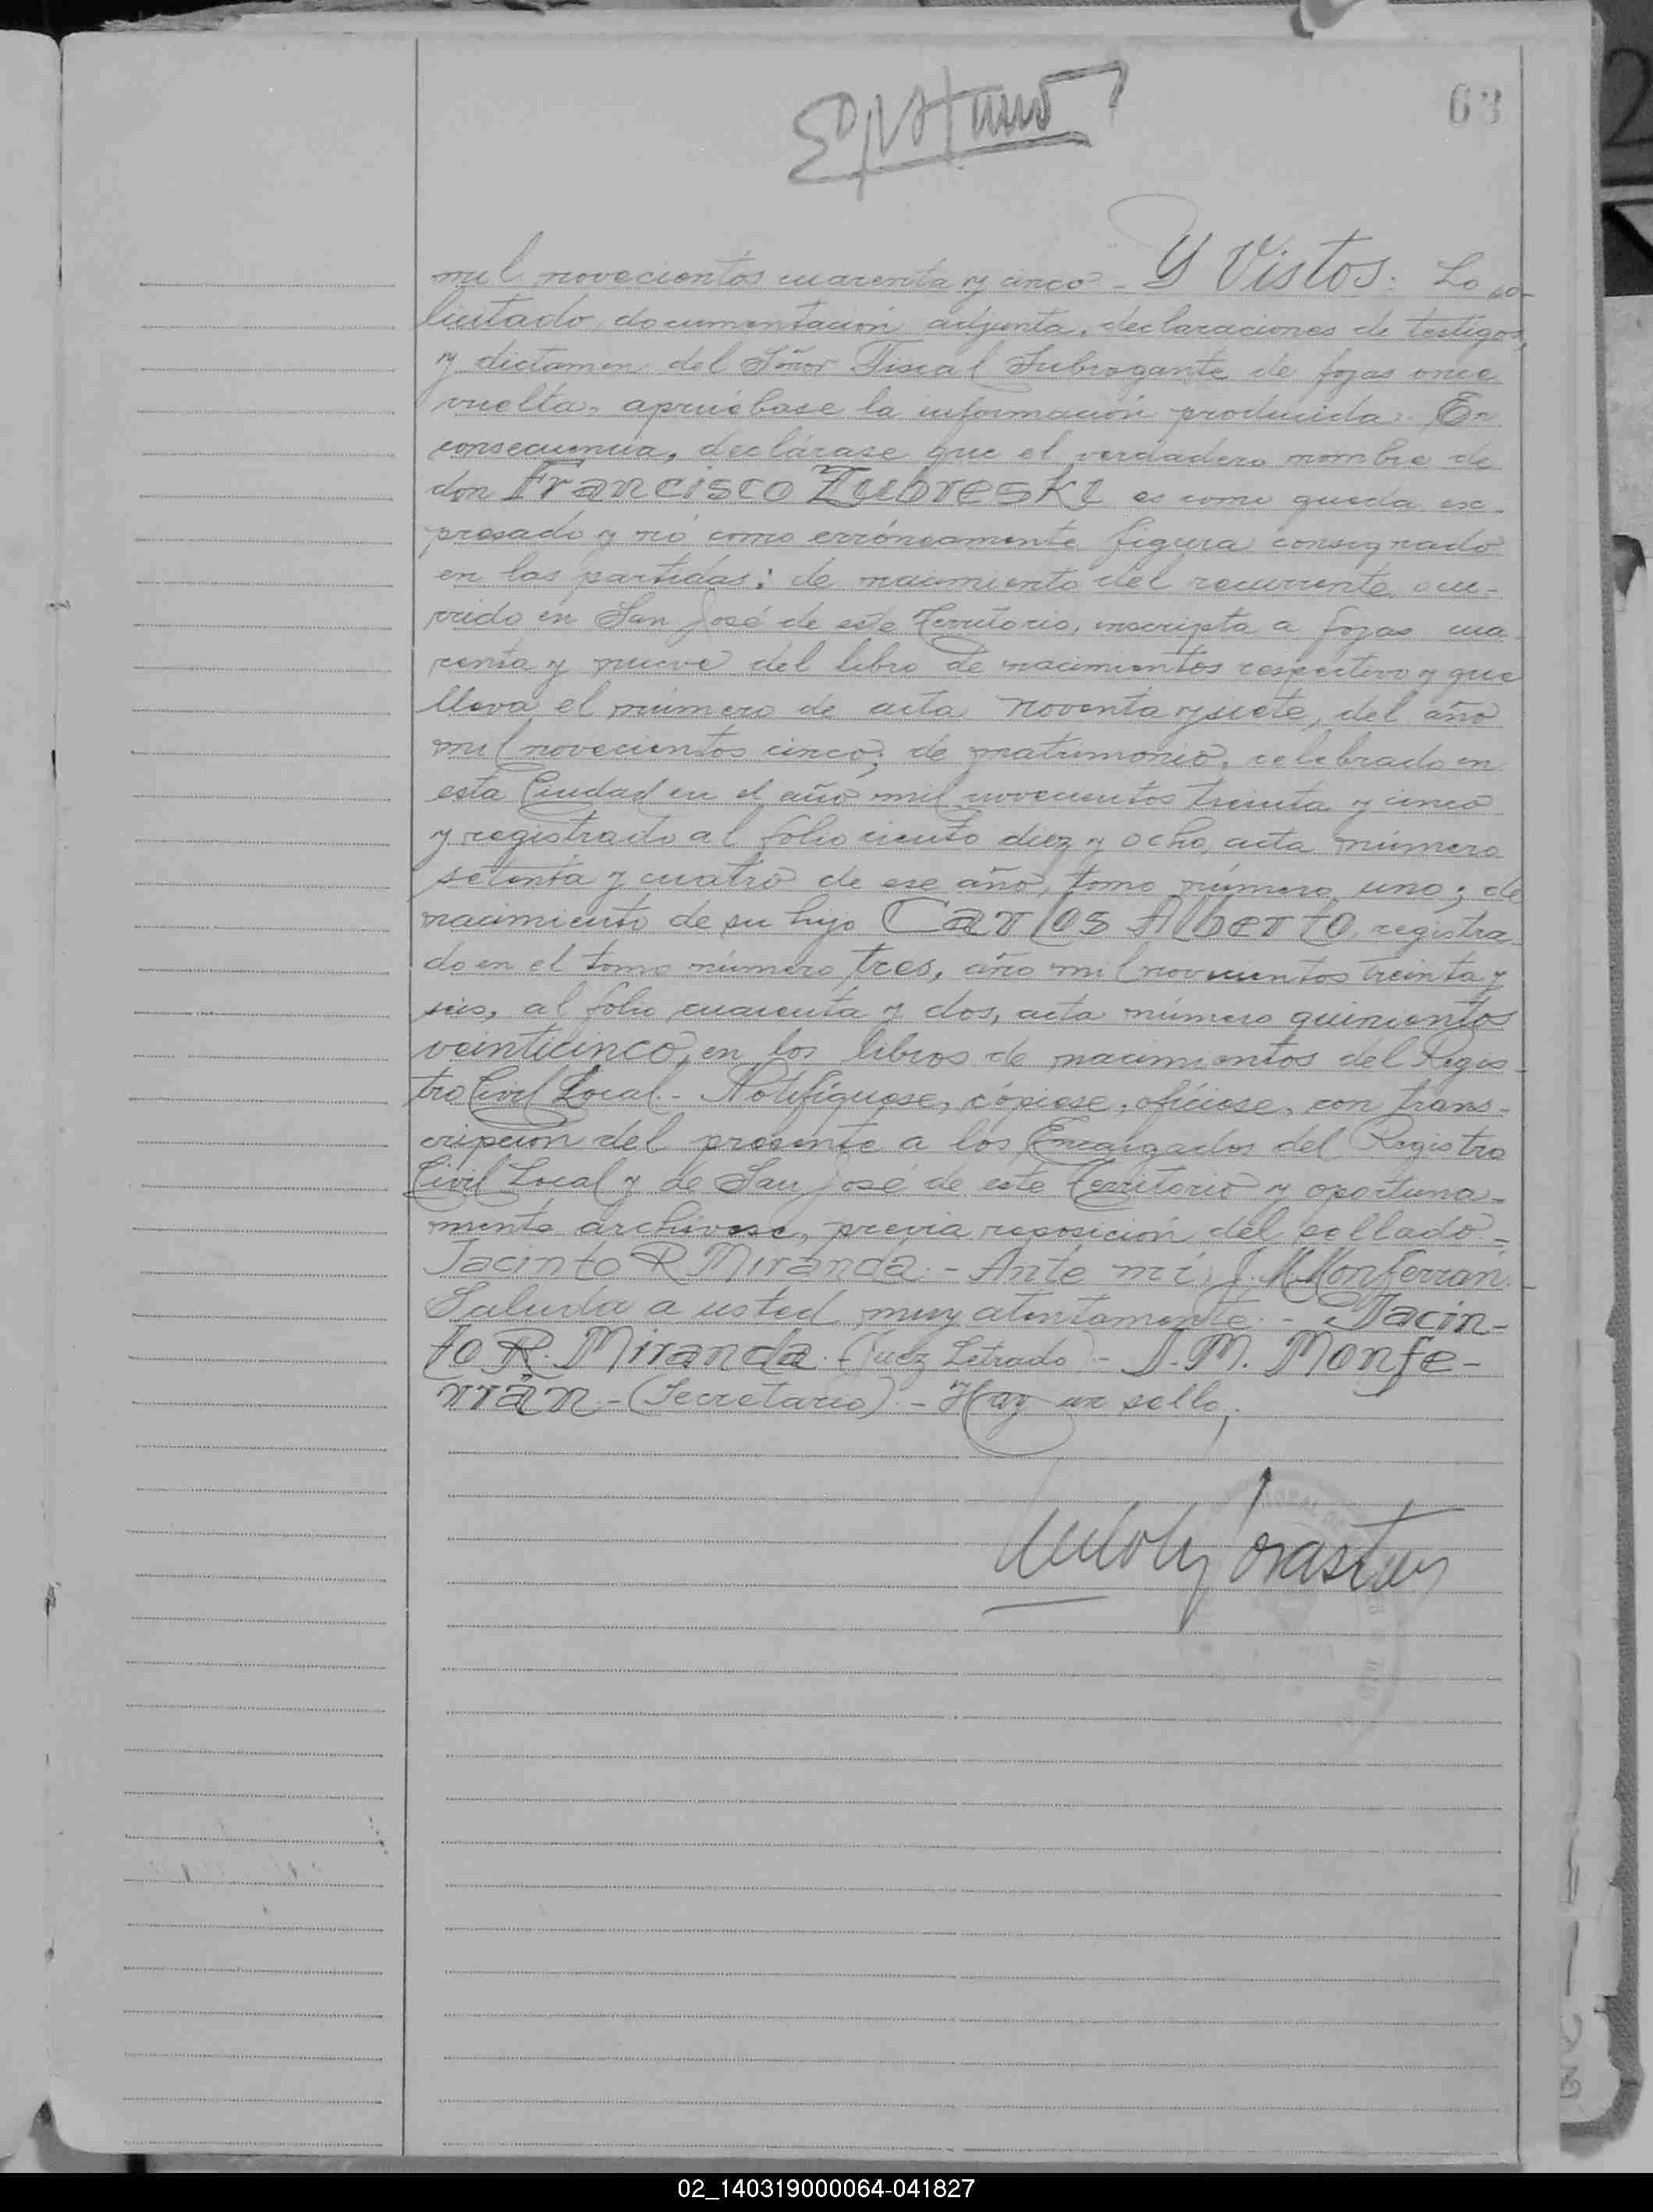 63
mil novecientos cuarenta y cinco - Y Vistos: Lo so-
licitado, documentación adjunta, declaraciones de testigos,
y dictamen del Señor Fiscal Subrogante de fojas once
vuelta, apruébase la información producida. En
consecuencia, declárase que el verdadero nombre de
don Francisco Zubreski es como queda ex-
presado y nó como erróneamente figura consignado
en las partidas: de nacimiento del recurrente, ocu-
rrido en San José de este Territorio, inscripta a fojas cua
renta y nueve del libro de nacimientos respectivo y que
lleva el número de acta noventa y siete, del año
mil novecientos cinco; de matrimonio, celebrado en
esta Ciudad en el año mil novecientos treinta y cinco
y registrado al folio ciento diez y ocho, acta número
setenta y cuatro de ese año, tomo número uno; de
nacimiento de su hijo Carlos Alberto, registra-
do en el tomo número tres, año mil novecientos treinta y
seis, al folio cuarenta y dos, acta número quinientos
veinticinco, en los libros de nacimientos del Regis-
tro Civil Local.- Notifíquese, cópiese, ofíciese, con trans-
cripción del presente a los Encargados del Registro
Civil Local y de San José de este Territorio y oportuna-
mente archívese, previa reposición del sellado.=
Jacinto R Miranda.- Ante mí, J. M. Monferran.-
Saluda a usted muy atentamente.- Jacin-
to R. Miranda.- (Juez Letrado)- J. M. Monfe-
rrán.-(Secretario).- Hay un sello.
02_140319000064-041827